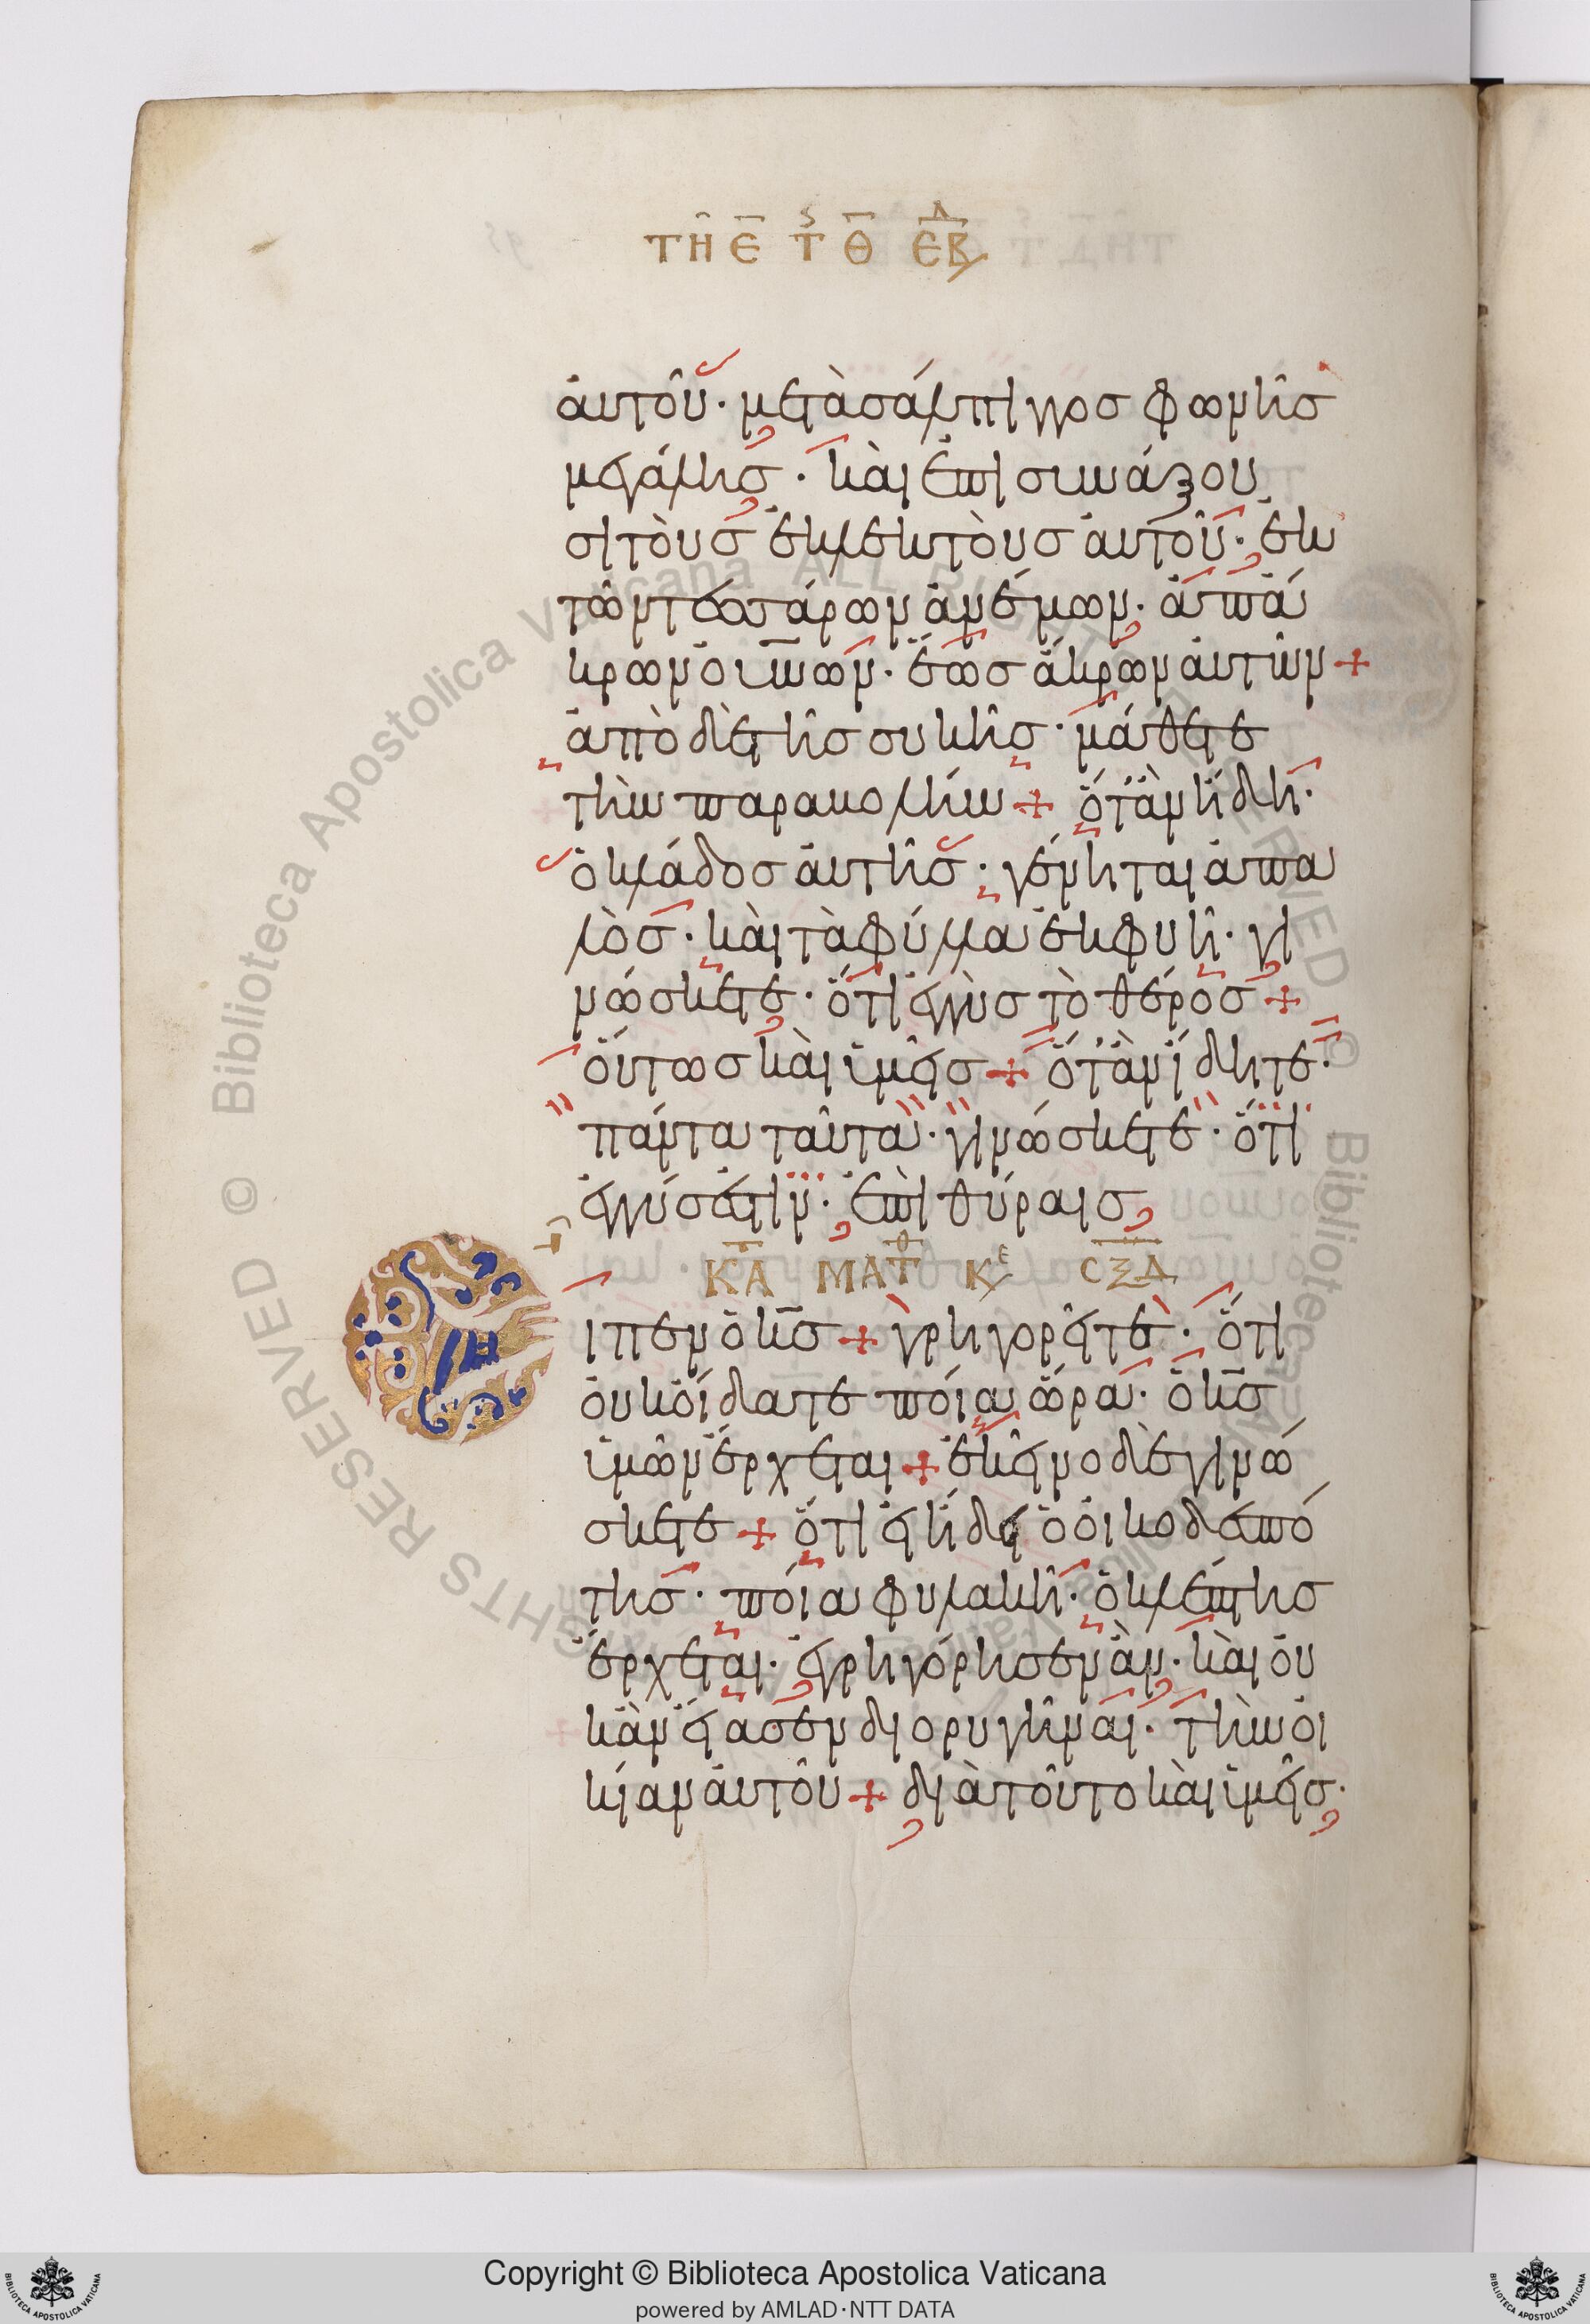 ΤΗ Ε Τ Θ ΕΒΔ
ἀυτοῦ· μετὰ σάλπιγγος φωνῆς
μεγάλης· κὰι ἐπισυνάξου
σι τοὺς ἐκλεκτοὺς ἀυτοῦ· ἐκ
τῶν τεσσάρων ἀνέμων· ἀπ ἄ
κρων ὀυνων· ἕως ἄκρων ἀυτῶν +
ἀπὸ δὲ τῆς συκῆς· μάθετε
τὴν παραβολήν + ὅτὰν ἤδη·
ὁ κλάδος ἀυτῆς· γένηται ἁπα
λὸς· κὰι τὰ φύλλα ἐκφυῆ· γι
νώσκετε· ὅτι ἐγγὺς τὸ θέρος +
ὅυτως κὰι ὑμεῖς + ὅτὰν ἴδητε·
πάντα ταῦτα· γινώσκετε· ὅτι
ἐγγύς ἐστιν· ἐπὶ θύραις
ΚΑ ΜΑΤΘ Κε ΣΞΔ
ιπεν ὁ κς + γρηγορεῖτε· ὅτι
ὀυκ ὀίδατε ποία ὥρα· ὁ κς
ὑμῶν ἔρχεται + ἐκεῖνο δὲ γινώ
σκετε + ὅτι εἰ ἤδει ὁ ὀικοδεσπό
της· ποία φυλακῆ· ὁ κλέπτης
ἔρχεται· ἐγρηγόρησεν ἂν· κὰι ὀυ
κ ἂν ἔιασεν διορυγῆναι· τὴν ὀι
κίαν ἀυτοῦ + διὰ τοῦτο κὰι ὑμεῖς·
Copyright © Biblioteca Apostolica Vaticana
powered by AMLAD·NTT DATA